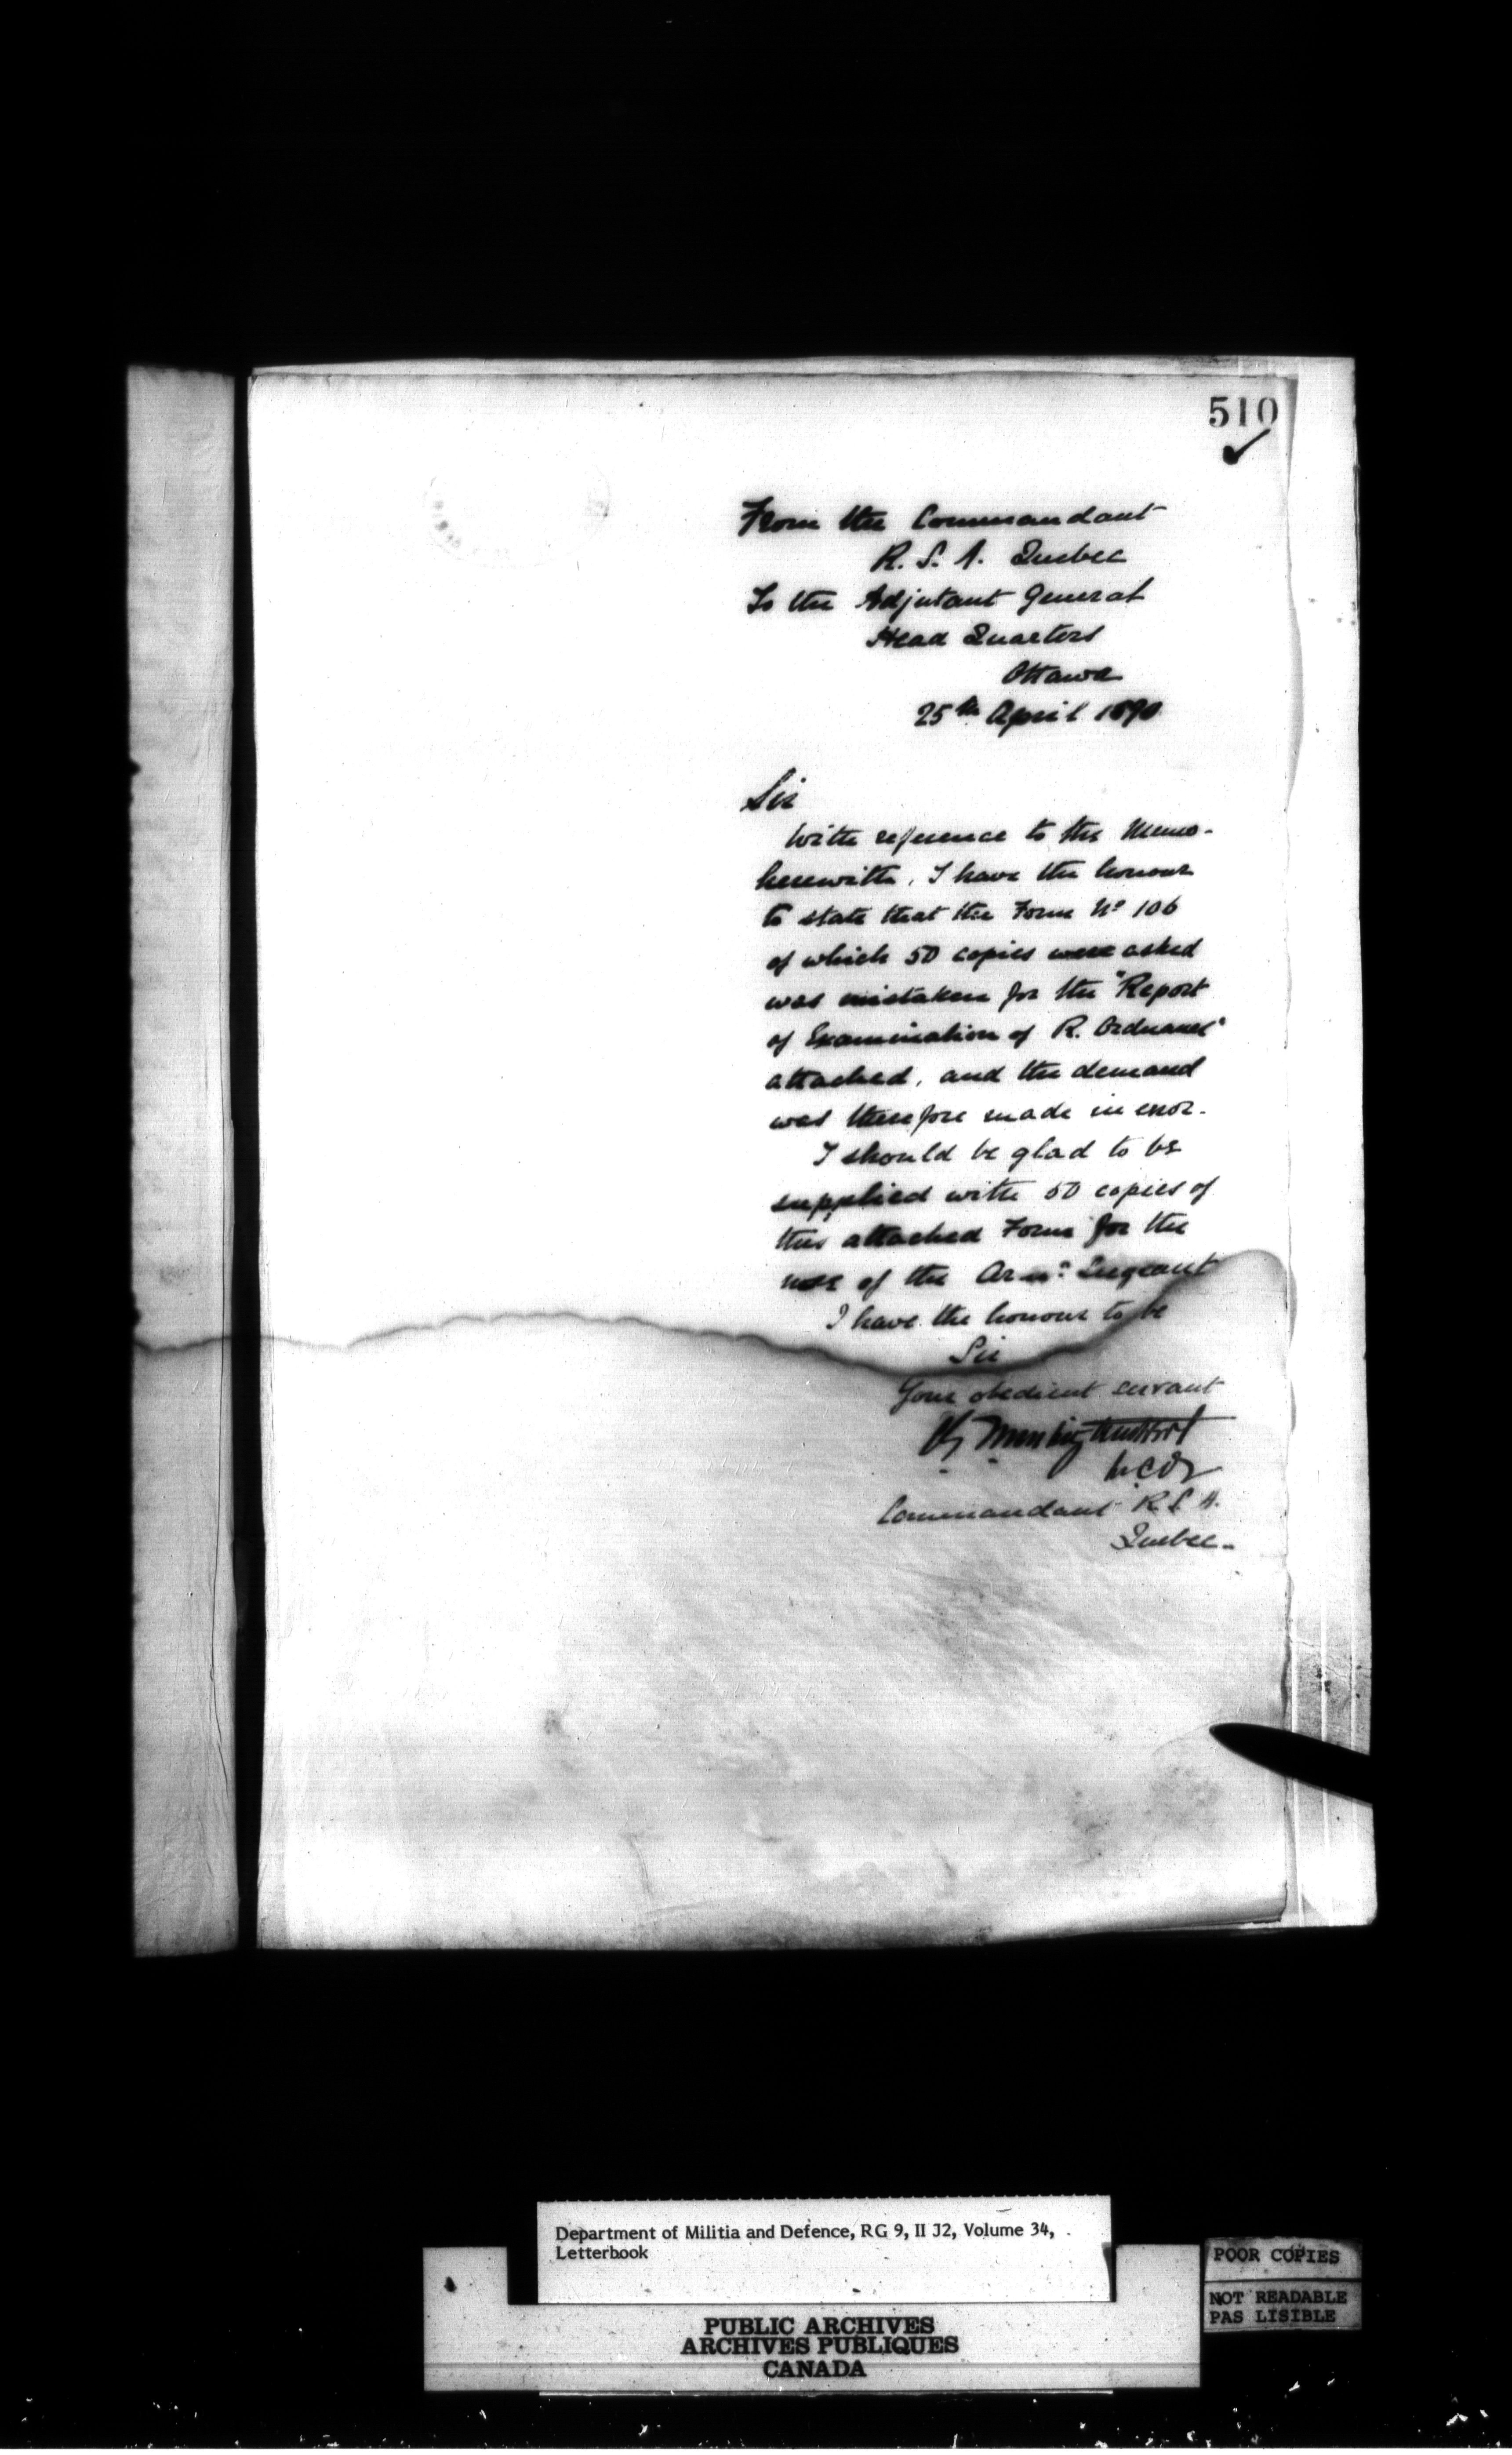 510
From the Commandant
R. S. A. Quebec
To the Adjutant General
Head Quarters
Ottawa
25th April 1890
Sir
With reference to the Memo-
herewith, I have the honour
to state that the Form No 106
of which 50 copies were asked
was mistaken for the "Report
of Examination of R. Ordnance"
attached, and the demand
was therefore made in error.
I should be glad to be
supplied with 50 copies of
this attached Form for the
use of the Armr Sergeant
I have the honour to be
Sir
Your obedient servant
Commandant R S A.
Quebec.
Department of Militia and Defence, RG 9, II J2, Volume 34,
Letterbook
POOR COPIES
NOT READABLE
PAS LISIBLE
PUBLIC ARCHIVES
ARCHIVES PUBLIQUES
CANADA